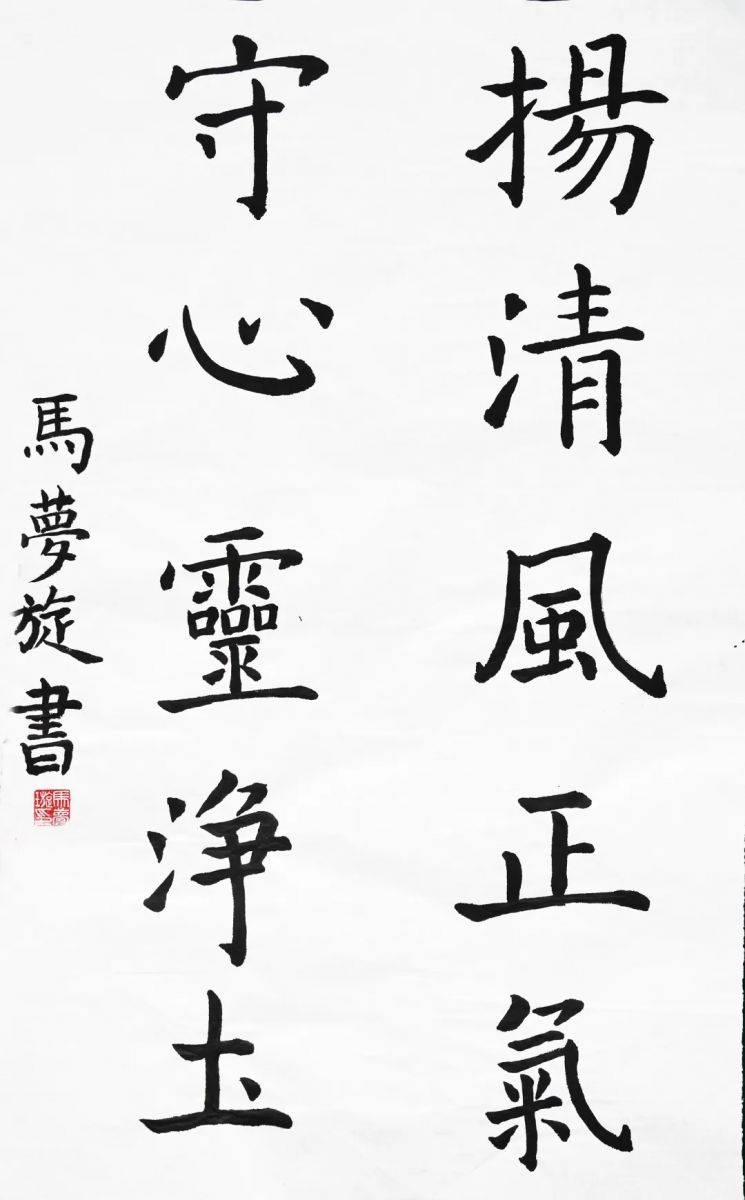 揚清風正氣
守心靈浄土
馬夢旋書